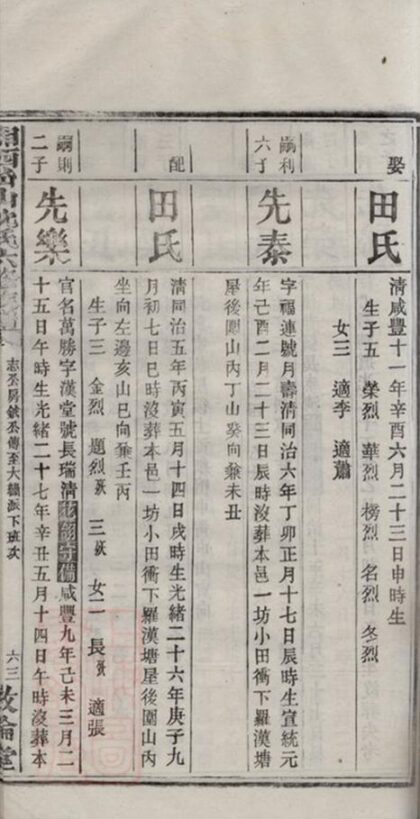 娶
田氏
清咸豐十一年辛酉六月二十三日申時生
生子五 榮烈 華烈 榜烈 名烈 冬烈
女三 適李 適蕭
嗣利
六子
先泰
字福連號月壽清同治六年丁卯正月十七日辰時生宣統元
年己酉二月二十三日辰時沒葬本邑一坊小田衝下羅漢塘
屋後園山內丁山癸向兼未丑
配
田氏
清同治五年丙寅五月十四日戌時生光緒二十六年庚子九
月初七日巳時沒葬本邑一坊小田衝下羅漢塘屋後園山內
坐向左邊亥山巳向兼壬丙
生子三 金烈 題烈 三 女二 長 適張
嗣則
二子
先樂
官名萬勝字漢堂號長瑞清藍翎守備咸豐九年己未三月二
十五日午時生光緒二十七年辛丑五月十四日午時沒葬本
志 房 公傳至大 派下班次
六三
敦倫堂